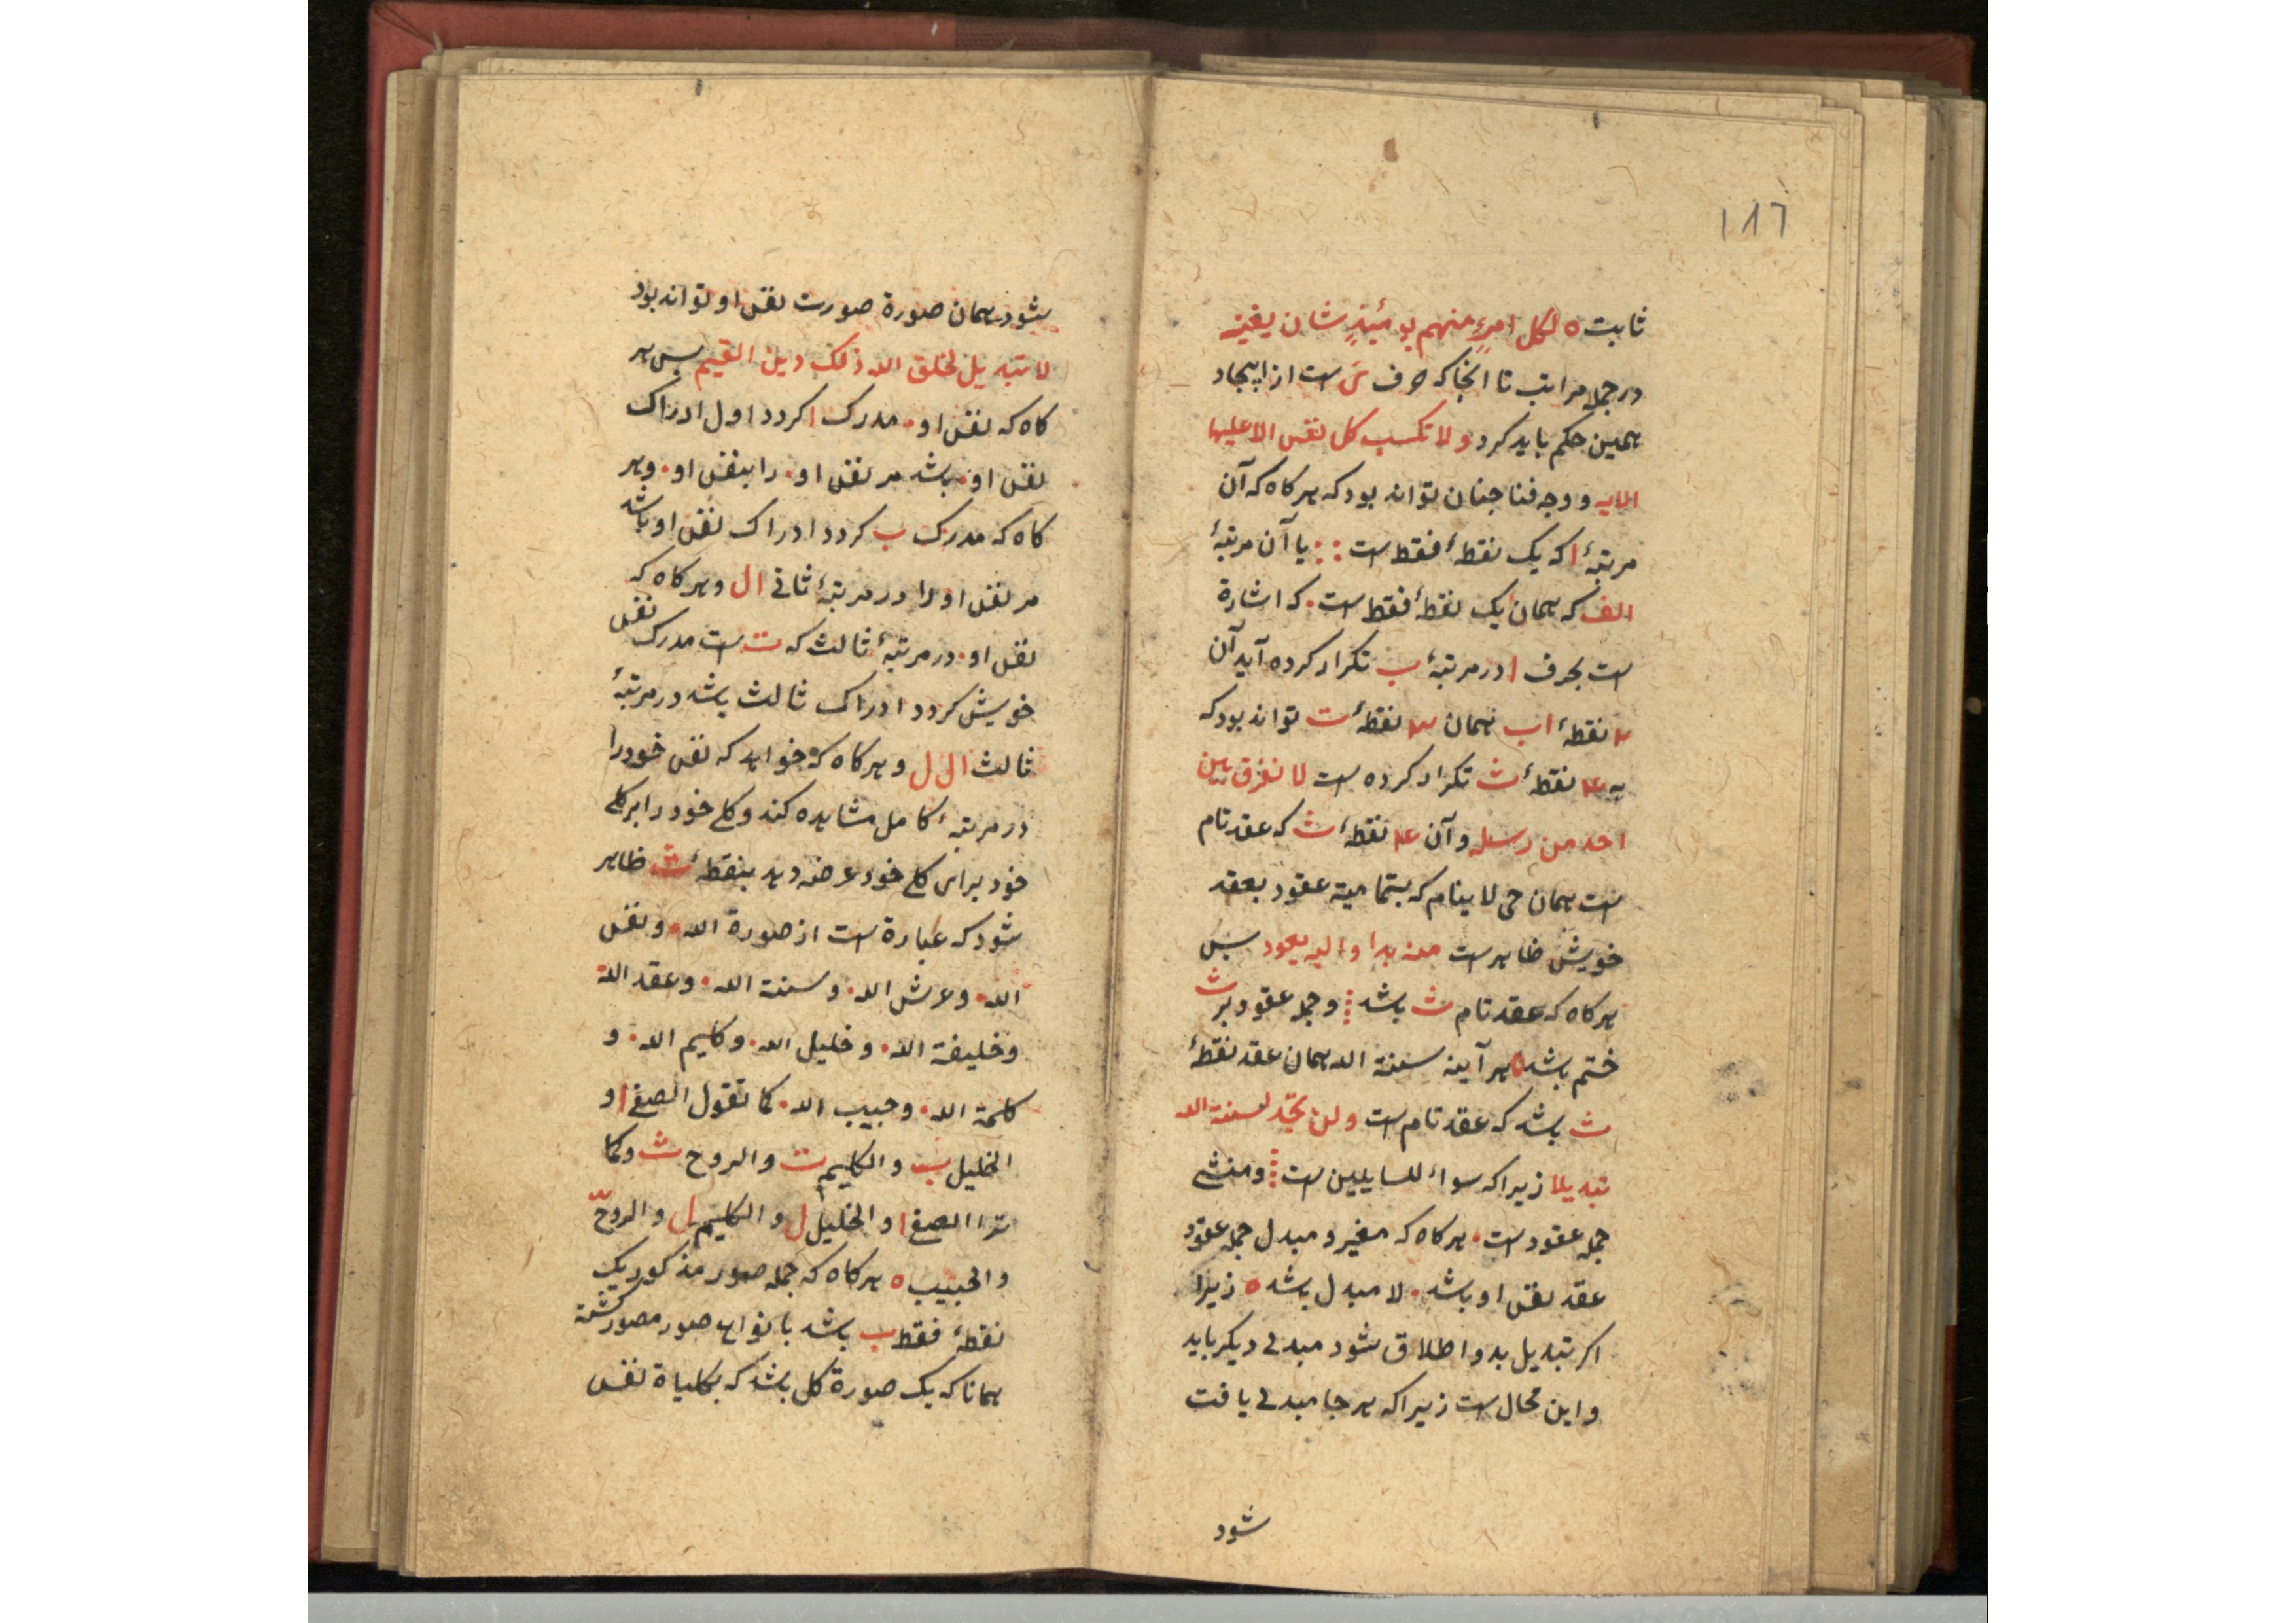 ١٨٦
ثابت ه لكل امرءٍ منهم يومئذٍ شان يغنيه
در جمله مراتب تا انجا كه حرف ىَ است از ايجاد
همين حكم بايد كرد ولا تكسب كل نفس الا عليها
الايه و وجه فنا جنان تواند بود كه هر كاه كه آن
مرتبهٔ ا كه يك نقطهٔ فقط است : : يا آن مرتبهٔ
الف كه همان يك نقطهٔ فقط است . كه اشارة
است بحرف ا در مرتبهٔ ب تكرار كرده آيد آن
نقطهٔ اب همان ٣ نقطهٔ ت تواند بود كه
به ٤ نقطهٔ ث تكرار كرده است لا نفرق بين
احد من رسله و آن ٤ نقطهٔ ث كه عقد تام
است همان حى لا ينام كه بتمامية عقود بعقد
خويش ظاهر است منه بدا واليه يعود بس
هر كاه كه عقد تام ث باشد و جمله عقود بر ث
ختم باشد ه هر آينه سنة الله همان عقد نقطهٔ
ث باشد كه عقد تام است ولن تجد لسنة الله
تبديلا زيرا كه سواء للسايلين است و منشى
جمله عقود است . هر كاه كه مغير و مبدل جمله عقود
عقد نفس او باشد . لا مبدل باشد ه زيرا
اكر تبديل بدو اطلاق شود مبدلى ديكر بايد
و اين محال است زيرا كه هر جا مبدلى يافت
شود
شود همان صورة صورت نفس او تواند بود
لا تبديل لخلق الله ذلك دين القيم بس هر
كاه كه نفس او . مدرك ا كردد اول ادراك
نفس او . باشد مر نفس او . را بنفس او . و هر
كاه كه مدرك ب كردد ادراك نفس او باشد
مر نفس او را در مرتبهٔ ثانى ال و هر كاه كه
نفس او . در مرتبهٔ ثالث كه ت است مدرك نفس
خويش كردد ادراك ثالث باشد در مرتبهٔ
ثالث ال ل و هر كاه كه خواهد كه نفس خود را
در مرتبهٔ كامل مشاهده كند و كل خود را بر كل
خود براى كل خود عرضه دهد بنقطهٔ ث ظاهر
شود كه عبارة است از صورة الله . و نفس
الله . و عرش الله . و سنة الله . و عقد الله .
و خليفة الله . و خليل الله . و كليم الله . و
كلمة الله . و حبيب الله . كما تقول الصفى ا و
الخليل ب و الكليم ت و الروح ث و كما
تقرا الصفى ا و الخليل ل و الكليم ل و الروح
و الحبيب ه هر كاه كه جمله صور مذكور يك
نقطهٔ فقط ب باشد بانواع صور مصور كشته
همانا كه يك صورة كل باشد كه بكلياة نفس